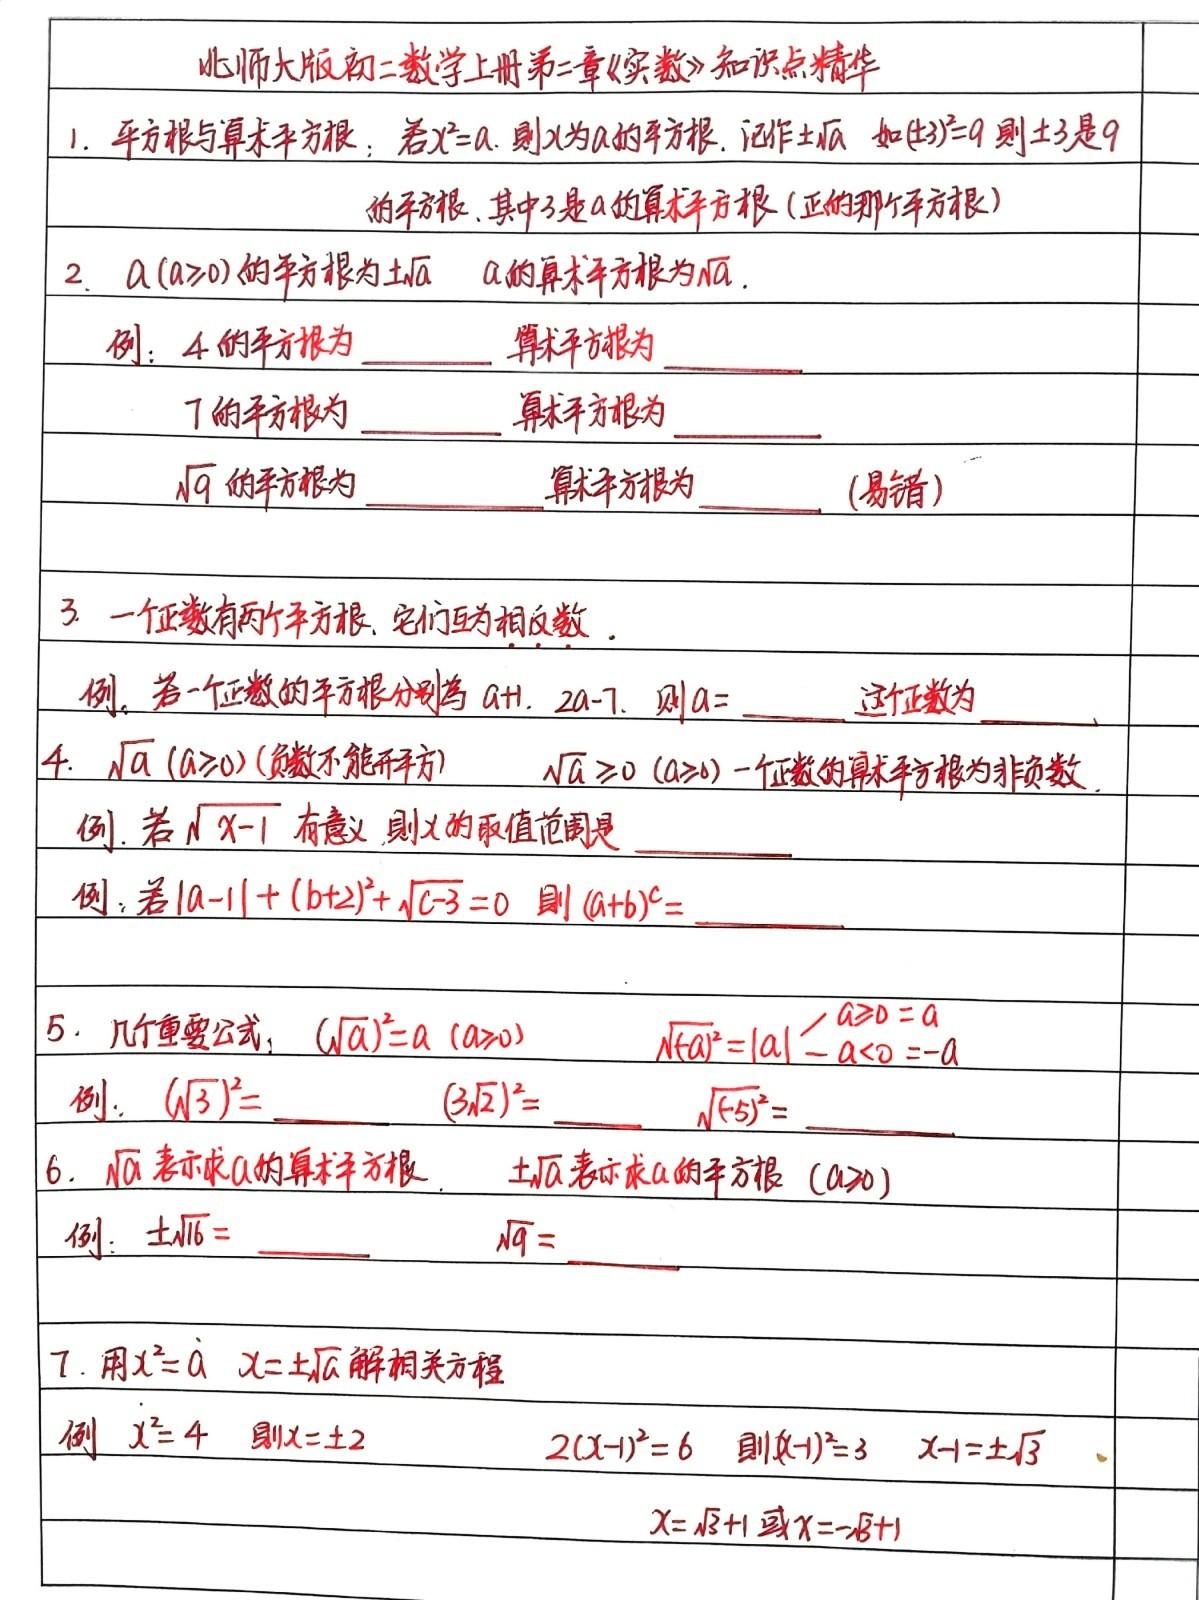 北师大版初二数学上册第二章《实数》知识点精华
1. 平方根与算术平方根：若x²=a. 则x为a的平方根. 记作±√a 如(±3)²=9 则±3是9
的平方根、其中3是a的算术平方根(正的那个平方根)
2. a(a≥0)的平方根为±√a a的算术平方根为√a.
例：4的平方根为______ 算术平方根为______
7的平方根为______ 算术平方根为______
√9的平方根为______ 算术平方根为______ (易错)
3. 一个正数有两个平方根、它们互为相反数.
例. 若一个正数的平方根分别为 a+1. 2a-7. 则a=______ 这个正数为______.
4. √a (a≥0)(负数不能开平方) √a≥0 (a≥0) 一个正数的算术平方根为非负数.
例. 若√(x-1) 有意义,则x的取值范围是______
例：若|a-1|+(b+2)²+√(c-3)=0 则(a+b)ᶜ=______
5. 几个重要公式： (√a)²=a (a≥0) √(-a)²=|a| a≥0 =a
a<0 =-a
例： (√3)²=______ (3√2)²=______ √(-5)²=______
6. √a表示求a的算术平方根. ±√a表示求a的平方根 (a≥0)
例：±√16=______ √9=______
7. 用x²=a x=±√a解相关方程
例 x²=4 则x=±2 2(x-1)²=6 则(x-1)²=3 x-1=±√3
x=√3+1或x=-√3+1